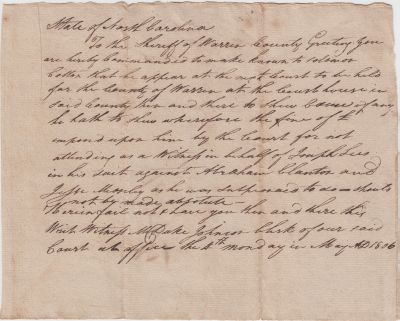 State of North Carolina
To the Sheriff of Warren County Greeting You
are hereby Commanded to make known to
that he appear at the next Court to be held
for the County of Warren at the Courthouse in
said County then and there to Shew Cause if any
he hath to shew wherefore the fine of
imposd upon him by the Court for not
attending as a Witness in behalf of Joseph
in his suit against Abraham Clanton and
Jesse as he was supponad to do should
not by made absolute
Herein fail not & have you then and there this
Writ Witness M Duke Johnson Clerk of our said
Court at office the 4th monday in May AD 1806